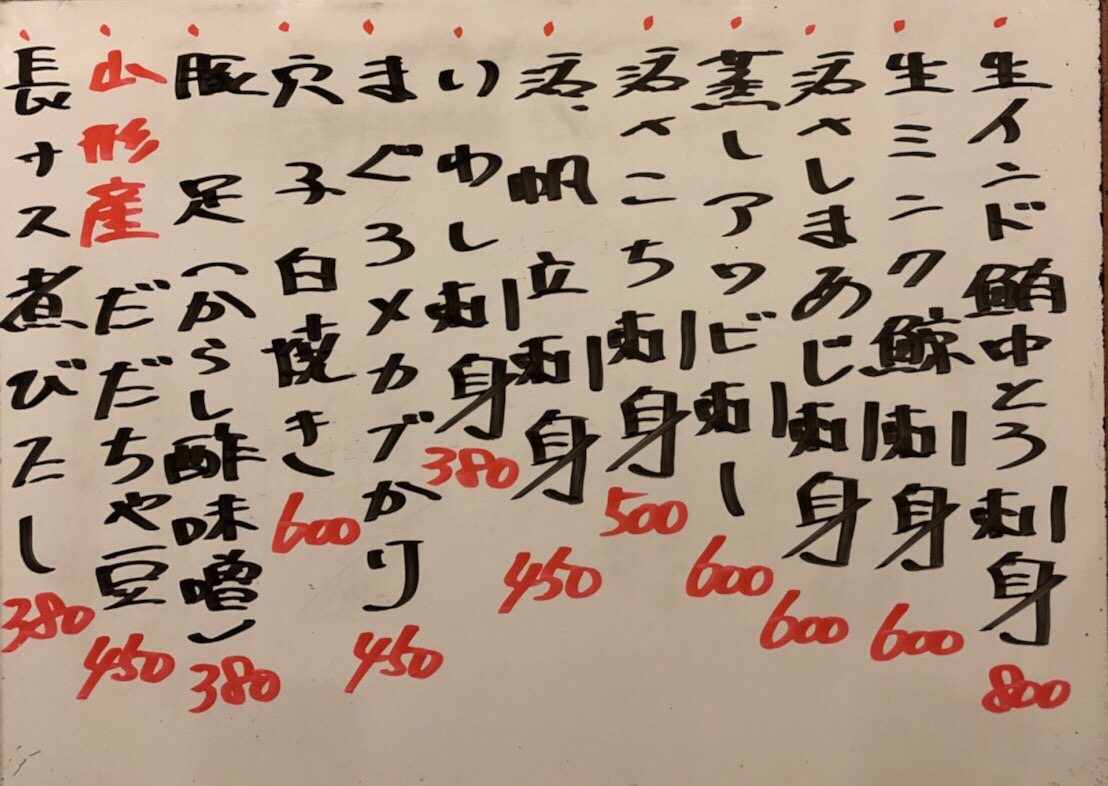 生インド鮪中とろ刺身 800
生ミンク鯨刺身 600
活〆しまあじ刺身 600
蒸しアワビ刺し 600
活〆こち刺身 500
活、帆立刺身 450
いわし刺身 380
まぐろメカブかけ 450
穴子白焼き 600
豚足(からし酢味噌) 380
山形産だだちゃ豆 450
長ナス煮びたし 380